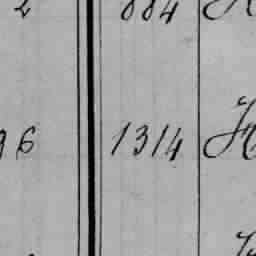 2 884
96 1314 H